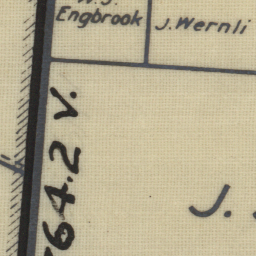 W. J.
Engbrook
J. Wernli
64.2 V.
J.